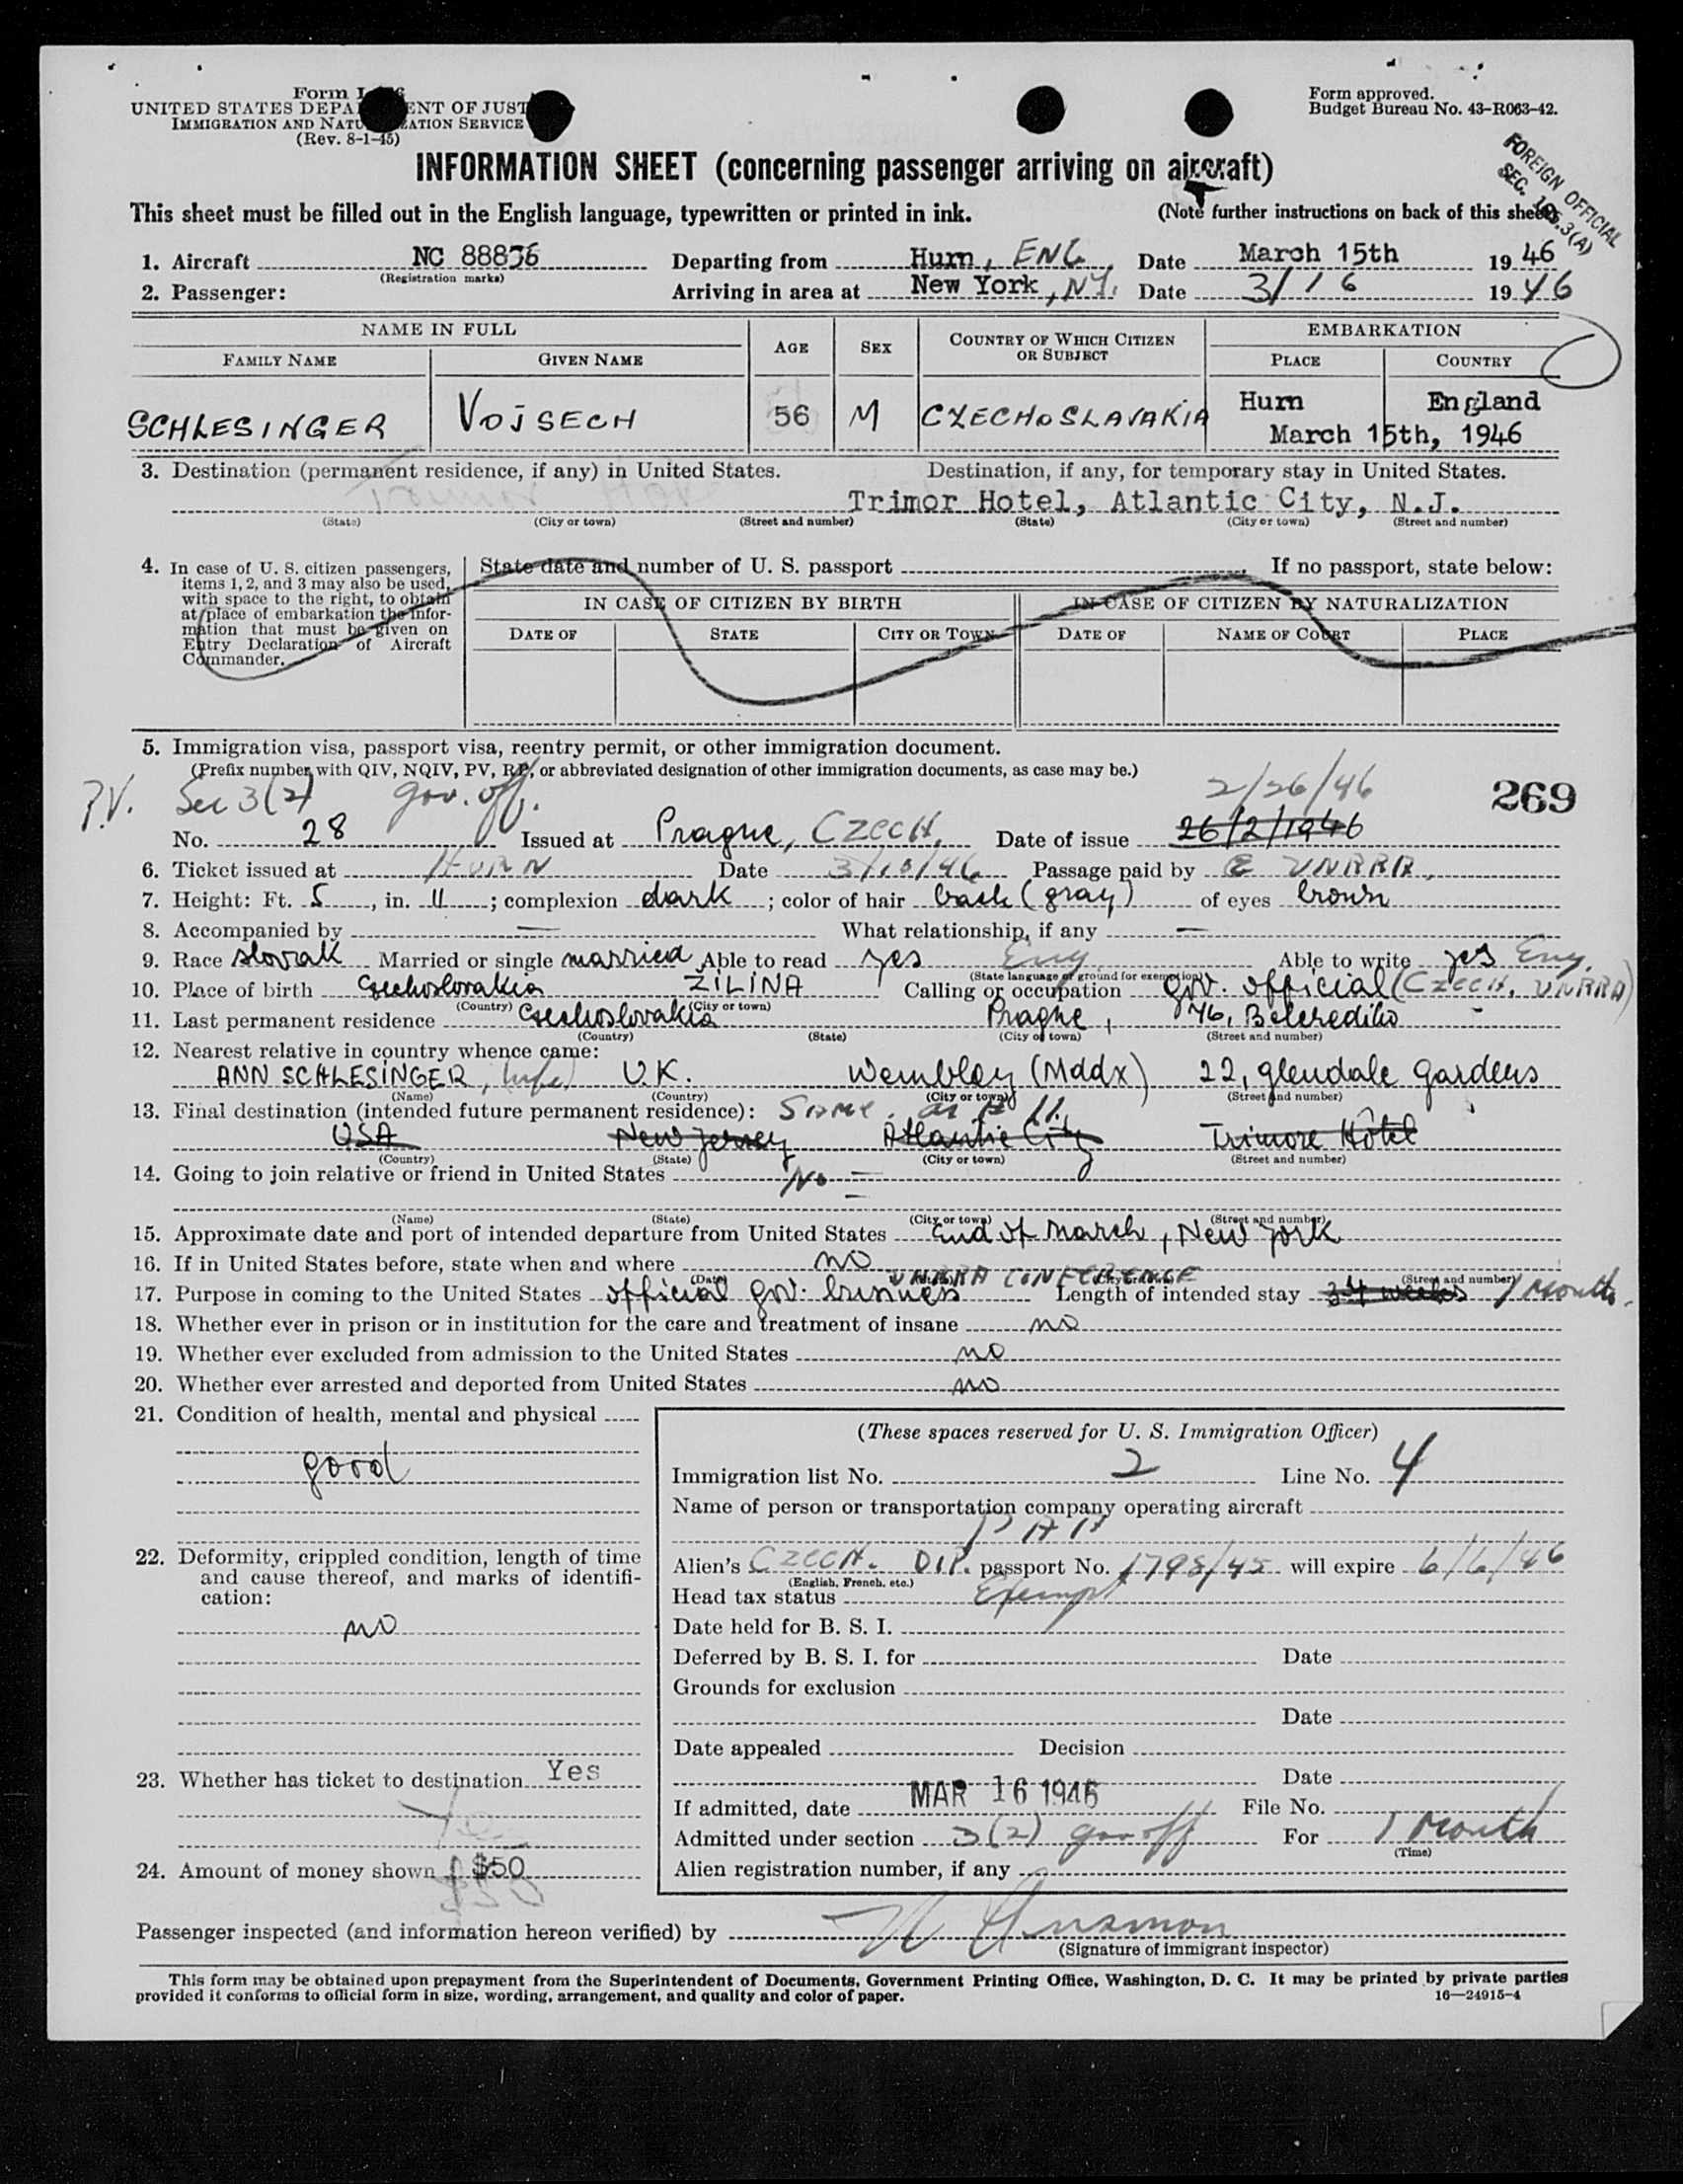 Form I
UNITED STATES DEPA ENT OF JUST
IMMIGRATION AND NATU ZATION SERVICE
(Rev. 8-1-45)
Form approved.
Budget Bureau No. 43-R063-42.
FOREIGN OFFICIAL
SEC. 3(A)
INFORMATION SHEET (concerning passenger arriving on aircraft)
This sheet must be filled out in the English language, typewritten or printed in ink. (Note further instructions on back of this sheet)
1. Aircraft NC 88836 Departing from Hurn, ENG. Date March 15th 1946
(Registration marks)
2. Passenger: Arriving in area at New York, N.Y. Date 3/16 1946
NAME IN FULL AGE SEX COUNTRY OF WHICH CITIZEN OR SUBJECT EMBARKATION
FAMILY NAME GIVEN NAME PLACE COUNTRY
SCHLESINGER VOJSECH 56 M CZECHOSLAVAKIA Hurn England
March 15th, 1946
3. Destination (permanent residence, if any) in United States. Destination, if any, for temporary stay in United States.
Trimor Hotel, Atlantic City, N.J.
(State) (City or town) (Street and number) (State) (City or town) (Street and number)
4. In case of U. S. citizen passengers, items 1, 2, and 3 may also be used, with space to the right, to obtain at place of embarkation the information that must be given on Entry Declaration of Aircraft Commander.
State date and number of U. S. passport If no passport, state below:
IN CASE OF CITIZEN BY BIRTH IN CASE OF CITIZEN BY NATURALIZATION
DATE OF STATE CITY OR TOWN DATE OF NAME OF COURT PLACE
5. Immigration visa, passport visa, reentry permit, or other immigration document.
(Prefix number with QIV, NQIV, PV, RP, or abbreviated designation of other immigration documents, as case may be.)
P.V. Sec 3(2) gov. off. 2/26/46 269
No. 28 Issued at Prague, CZECH. Date of issue 26/2/1946
6. Ticket issued at HURN Date 3/15/46 Passage paid by UNRRA.
7. Height: Ft. 5, in. 11; complexion dark; color of hair back (gray) of eyes brown
8. Accompanied by — What relationship, if any —
9. Race slovak Married or single married Able to read yes Eng. Able to write yes Eng.
(State language or ground for exemption)
10. Place of birth Czechoslovakia ŽILINA Calling or occupation gov. official (CZECH. UNRRA)
(Country) (City or town)
11. Last permanent residence Czechoslovakia Prague, 46, Belcrediho
(Country) (State) (City or town) (Street and number)
12. Nearest relative in country whence came:
ANN SCHLESINGER, (wife) U.K. Wembley (Mddx) 22, glendale gardens
(Name) (Country) (City or town) (Street and number)
13. Final destination (intended future permanent residence): Same as # 11.
USA New Jersey Atlantic City Trimore Hôtel
(Country) (State) (City or town) (Street and number)
14. Going to join relative or friend in United States No —
(Name) (State) (City or town) (Street and number)
15. Approximate date and port of intended departure from United States End of March, New York
16. If in United States before, state when and where no
(Date) (Street and number)
UNRRA CONFERENCE
17. Purpose in coming to the United States official gov. business Length of intended stay 3-4 weeks 1 Month.
18. Whether ever in prison or in institution for the care and treatment of insane no
19. Whether ever excluded from admission to the United States no
20. Whether ever arrested and deported from United States no
21. Condition of health, mental and physical
good
22. Deformity, crippled condition, length of time and cause thereof, and marks of identification:
no
23. Whether has ticket to destination Yes
Yes
24. Amount of money shown $50
$50
(These spaces reserved for U. S. Immigration Officer)
Immigration list No. 2 Line No. 4
Name of person or transportation company operating aircraft
PAA
Alien's CZECH. DIP. passport No. 1798/45 will expire 6/6/46
(English, French, etc.)
Head tax status Exempt
Date held for B. S. I.
Deferred by B. S. I. for Date
Grounds for exclusion
Date
Date appealed Decision
Date
If admitted, date MAR 16 1946 File No.
Admitted under section 3(2) gov off For 1 Month
(Time)
Alien registration number, if any
Passenger inspected (and information hereon verified) by
(Signature of immigrant inspector)
This form may be obtained upon prepayment from the Superintendent of Documents, Government Printing Office, Washington, D. C. It may be printed by private parties
provided it conforms to official form in size, wording, arrangement, and quality and color of paper. 16—24915-4